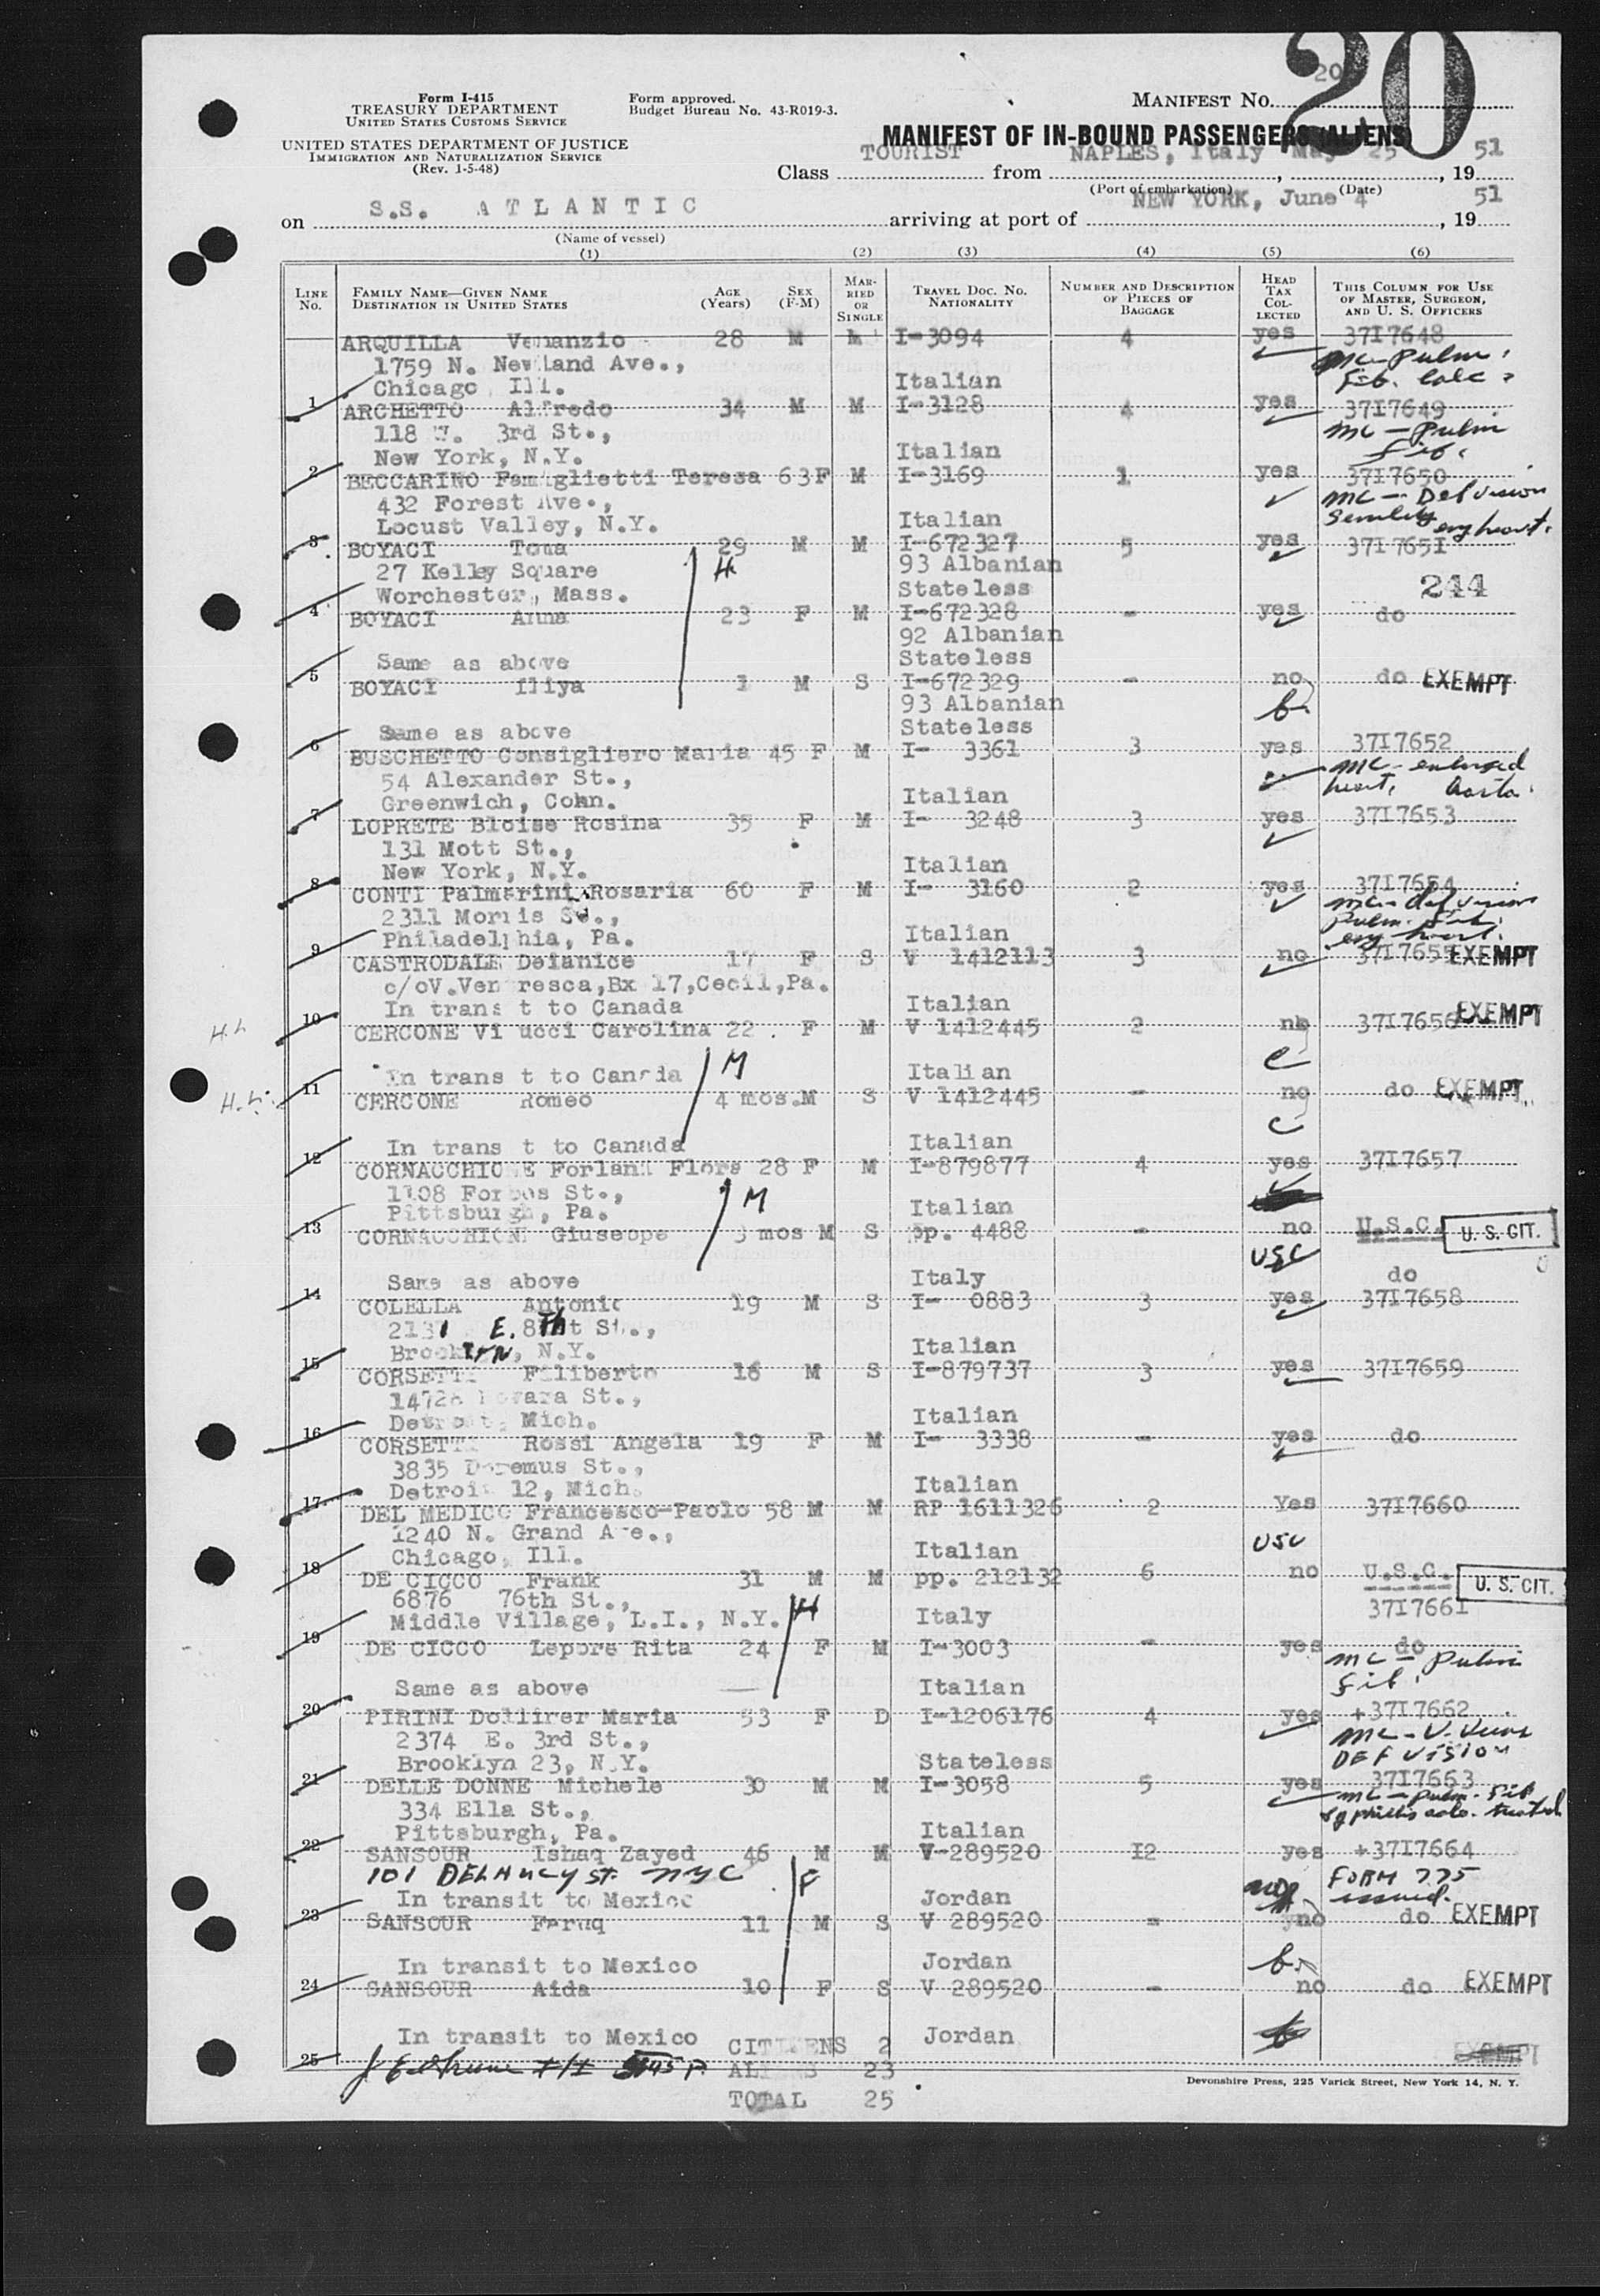 20
20
Form I-415
TREASURY DEPARTMENT
UNITED STATES CUSTOMS SERVICE
UNITED STATES DEPARTMENT OF JUSTICE
IMMIGRATION AND NATURALIZATION SERVICE
(Rev. 1-5-48)
Form approved.
Budget Bureau No. 43-R019-3.
MANIFEST No.
MANIFEST OF IN-BOUND PASSENGERS (ALIENS)
Class TOURIST from NAPLES, Italy May 25, 19 51
(Port of embarkation) (Date)
on S.S. ATLANTIC arriving at port of NEW YORK, June 4, 19 51
(Name of vessel)
(1) (2) (3) (4) (5) (6)
LINE No. FAMILY NAME—GIVEN NAME DESTINATION IN UNITED STATES AGE (Years) SEX (F-M) MARRIED OR SINGLE TRAVEL DOC. NO. NATIONALITY NUMBER AND DESCRIPTION OF PIECES OF BAGGAGE HEAD TAX COLLECTED THIS COLUMN FOR USE OF MASTER, SURGEON, AND U. S. OFFICERS
ARQUILLA Venanzio 28 M M I-3094 4 yes 3717648
1759 N. Newland Ave., mc - Pulm.
1 Chicago Ill. Italian Fib. Calc
ARCHETTO Alfredo 34 M M I-3128 4 yes 3717649
118 W. 3rd St., mc - Pulm
2 New York, N.Y. Italian Fib.
BECCARINO Famiglietti Teresa 63 F M I-3169 1 yes 3717650
432 Forest Ave., mc - Def vision
3 Locust Valley, N.Y. Italian Senility eng heart.
BOYACI Toma 29 M M I-672327 5 yes 3717651
27 Kelley Square H 93 Albanian
4 Worchester, Mass. Stateless 244
BOYACI Anna 23 F M I-672328 - yes do
92 Albanian
5 Same as above Stateless
BOYACI Iliya 1 M S I-672329 - no do EXEMPT
93 Albanian b.
6 Same as above Stateless
BUSCHETTO Consigliero Maria 45 F M I- 3361 3 yes 3717652
54 Alexander St., mc - enlarged
7 Greenwich, Conn. Italian heart. Aorta.
LOPRETE Bloise Rosina 35 F M I- 3248 3 yes 3717653
131 Mott St.,
8 New York, N.Y. Italian
CONTI Palmarini Rosaria 60 F M I- 3160 2 yes 3717654
2311 Morris St., mc - def vision
9 Philadelphia, Pa. Italian Pulm. Fib. eng heart.
CASTRODALE Deianice 17 F S V 1412113 3 no 3717655 EXEMPT
c/oV.Ventresca,Bx 17,Cecil,Pa.
10 In transit to Canada Italian
H.L CERCONE Vi ucci Carolina 22 F M V 1412445 2 no 3717656 EXEMPT
M c
11 In transit to Canada Italian
H.L. CERCONE Romeo 4 mos. M S V 1412445 - no do EXEMPT
c
12 In transit to Canada Italian
CORNACCHIONE Forlani Flora 28 F M I-879877 4 yes 3717657
1108 Forbes St., M
13 Pittsburgh, Pa. Italian
CORNACCHIONE Giuseppe 3 mos M S pp. 4488 - no U.S.C. U. S. CIT.
USC
14 Same as above Italy do
COLELLA Antonio 19 M S I- 0883 3 yes 3717658
2131 E. 8Tht St.,
15 Brooklyn, N.Y. Italian
CORSETTI Filiberto 16 M S I-879737 3 yes 3717659
14728 Novara St.,
16 Detroit, Mich. Italian
CORSETTI Rossi Angela 19 F M I- 3338 - yes do
3835 Doremus St.,
17 Detroit 12, Mich. Italian
DEL MEDICO Francesco-Paolo 58 M M RP 1611326 2 Yes 3717660
1240 N. Grand Ave.,
18 Chicago, Ill. Italian USC
DE CICCO Frank 31 M M pp. 212132 6 no U.S.C. U. S. CIT.
6876 76th St., 3717661
19 Middle Village, L.I., N.Y. H Italy
DE CICCO Lepore Rita 24 F M I-3003 - yes do
mc - Pulm
20 Same as above Italian Fib.
PIRINI Dollirer Maria 53 F D I-1206176 4 yes +3717662
2374 E. 3rd St., mc - V. Veins
21 Brooklyn 23, N.Y. Stateless DEF VISION
DELLE DONNE Michele 30 M M I-3058 5 yes 3717663
334 Ella St., mc - pulm. Fib
22 Pittsburgh, Pa. Italian syphilis treated
SANSOUR Ishaq Zayed 46 M M V-289520 12 yes +3717664
101 DELANCY ST. NYC F FORM 775
23 In transit to Mexico Jordan issued.
SANSOUR Faruq 11 M S V 289520 - no do EXEMPT
b.
24 In transit to Mexico Jordan
SANSOUR Aida 10 F S V 289520 - no do EXEMPT
25 In transit to Mexico Jordan EXEMPT
CITIZENS 2
ALIENS 23
TOTAL 25
Devonshire Press, 225 Varick Street, New York 14, N. Y.